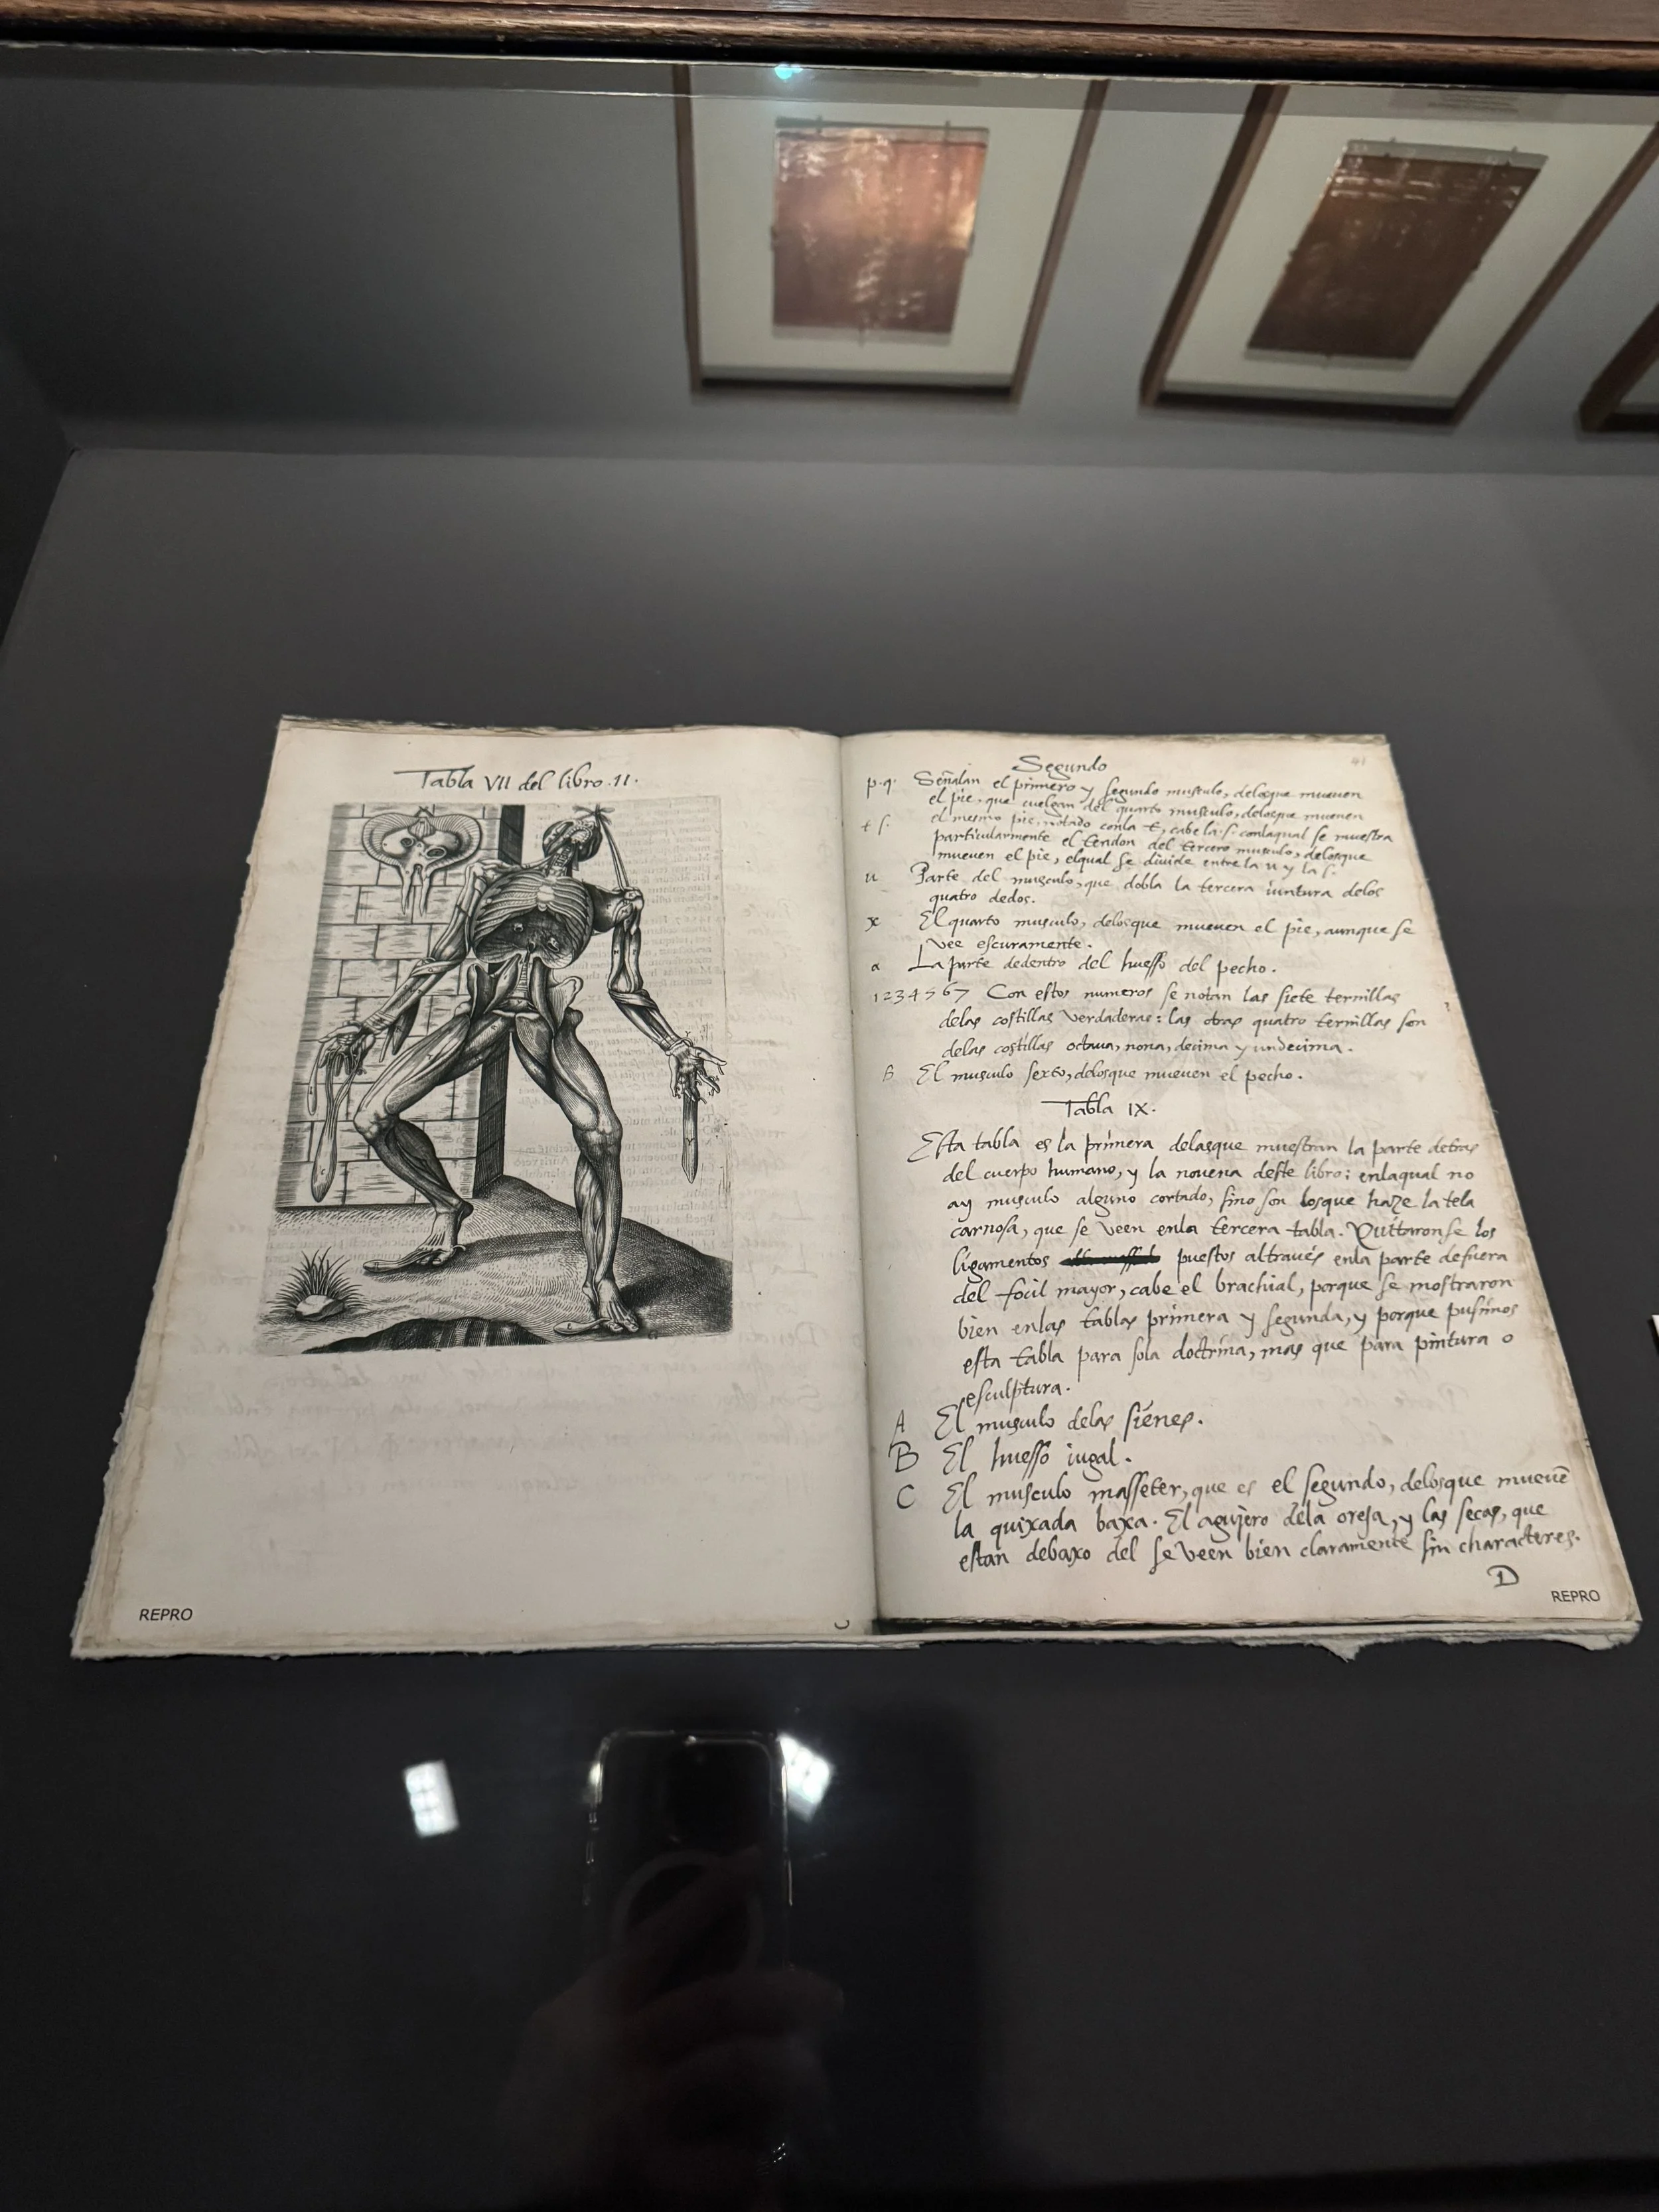 Tabla VII del libro .II.
REPRO
Segundo
41
p.q. Señalan el primero y segundo musculo, delosque mueuen
el pie. que cuelgan del quarto musculo, delosque mueuen
t ſ. el mesmo pie, notado conla t, cabe la .ſ. conlaqual se muestra
particularmente el tendon del tercero musculo, delosque
mueuen el pie, elqual se diuide entre la u y la ſ.
u Parte del musculo, que dobla la tercera iuntura delos
quatro dedos.
x El quarto musculo, delosque mueuen el pie, aunque ſe
vee eſcuramente.
a La parte dedentro del hueſſo del pecho.
1 2 3 4 5 6 7 Con eſtos numeros ſe notan las ſiete ternillas
delas coſtillas verdaderas: las otras quatro ternillas ſon
delas coſtillas octaua, nona, decima y undecima.
B El musculo ſexto, delosque mueuen el pecho.
Tabla IX.
Eſta tabla es la primera delasque mueſtran la parte detras
del cuerpo humano, y la nouena deſte libro: enlaqual no
ay musculo alguno cortado, ſino ſon losque haze la tela
carnoſa, que se veen enla tercera tabla. Quitaronſe los
ligamentos puestos altraués enla parte defuera
del focil mayor, cabe el brachial, porque ſe moſtraron
bien enlas tablas primera y ſegunda, y porque puſimos
eſta tabla para ſola doctrina, mas que para pintura o
eſculptura.
A El musculo delas ſienes.
B El hueſſo iugal.
C El musculo maſſeter, que es el ſegundo, delosque mueuẽ
la quixada baxa. El agujero dela oreja, y las ſecas, que
eſtan debaxo del ſe veen bien claramente ſin characteres.
D
REPRO